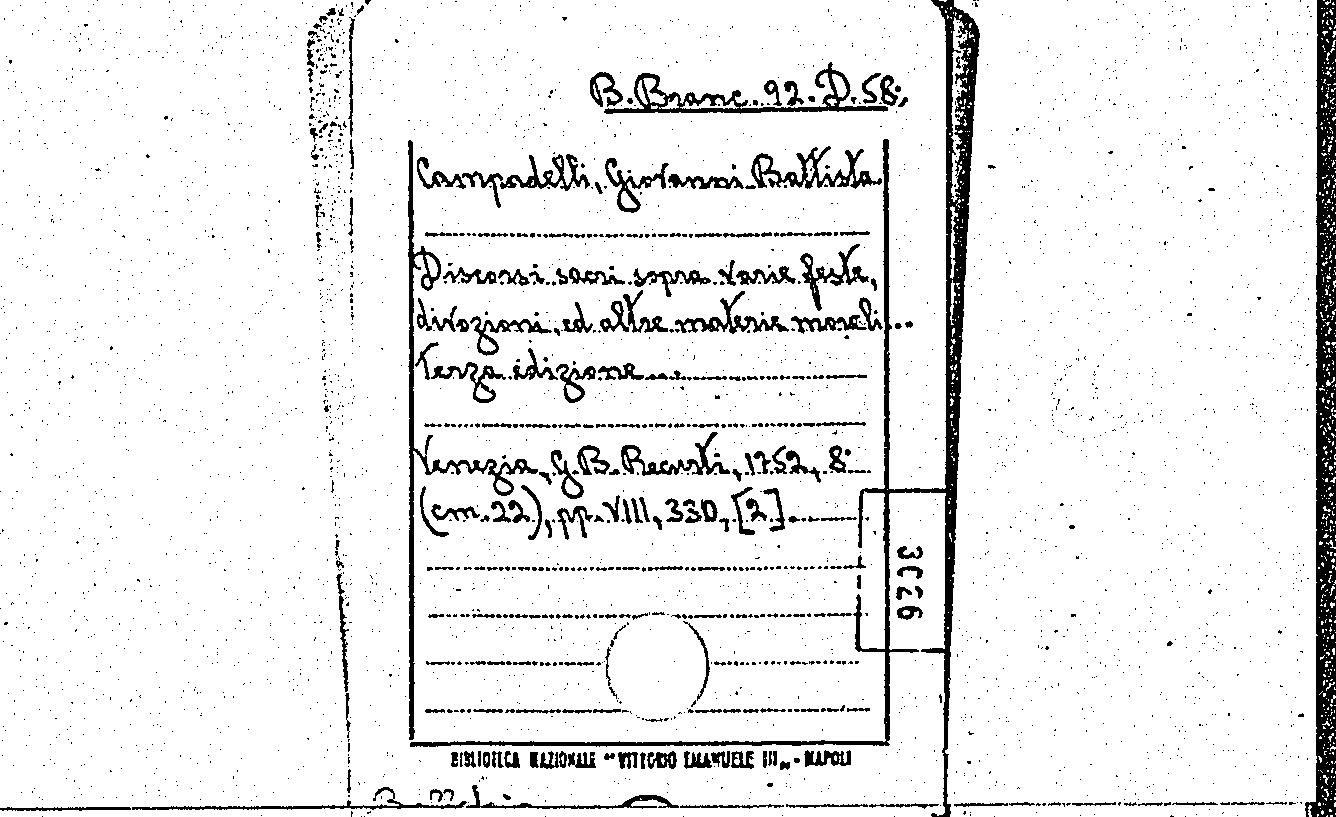 B. Branc. 92. D. 58,
Campadelli, Giovanni Battista
Discorsi sacri sopra varie feste,
divozioni, ed altre materie morali...
Terza edizione...
Venezia, G.B. Recurti, 1752, 8°
(cm. 22), pp. VIII, 330, [2].
3026
BIBLIOTECA NAZIONALE "VITTORIO EMANUELE III„ - NAPOLI